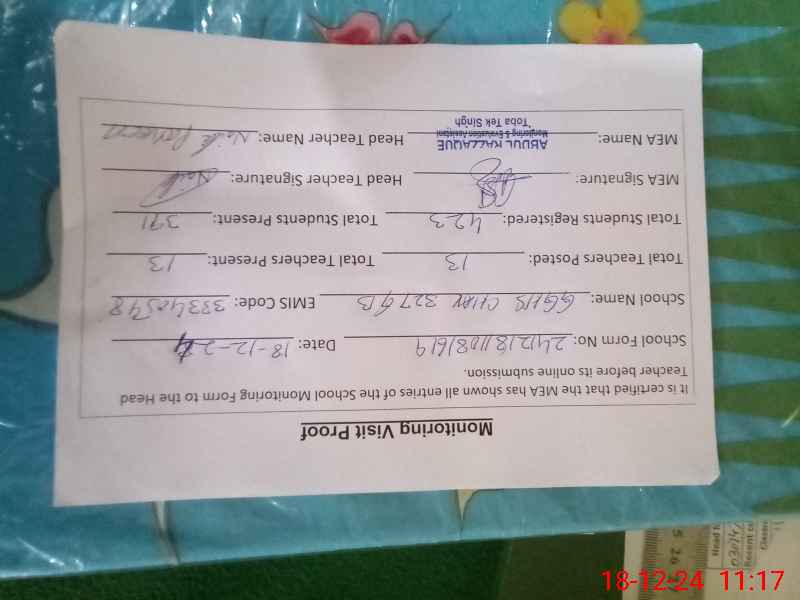 Monitoring Visit Proof
It is certified that the MEA has shown all entries of the School Monitoring Form to the Head
Teacher before its online submission.
School Form No: 24121811081619 Date: 18-12-24
School Name: GGHS CHAK 327 GB EMIS Code: 33340548
Total Teachers Posted: 13 Total Teachers Present: 13
Total Students Registered: 423 Total Students Present: 391
MEA Signature: Head Teacher Signature:
MEA Name: ABDUL KHALAQUE Head Teacher Name:
Monitoring & Evaluation Assistant
Toba Tek Singh
18-12-24 11:17